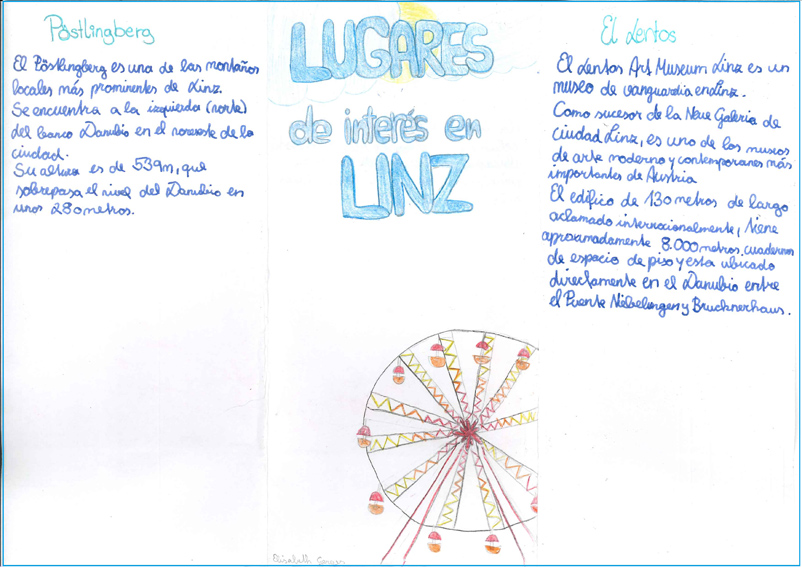 Pöstlingberg
El Pöstlingberg es una de las montaños
locales más prominentes de Linz.
Se encuentra a la izquierda (norte)
del banco Danubio en el noroeste de la
ciudad.
Su altura es de 539m, que
sobrepasa el nivel del Danubio en
unos 280 metros.
LUGARES
de interés en
LINZ
Elisabeth
El Lentos
El Lentos Art Museum Linz es un
museo de vanguardia en Linz.
Como sucesor de la Neue Galerie de
ciudad Linz, es uno de los museos
de arte moderno y contemporaneo más
importantes de Austria
El edifico de 130 metros de largo
aclamado internacionalmente, tiene
aproximadamente 8.000 metros cuadernon
de espacio de piso y esta ubicado
directamente en el Danubio entre
el Puente Niebelungen y Brucknerhaus.